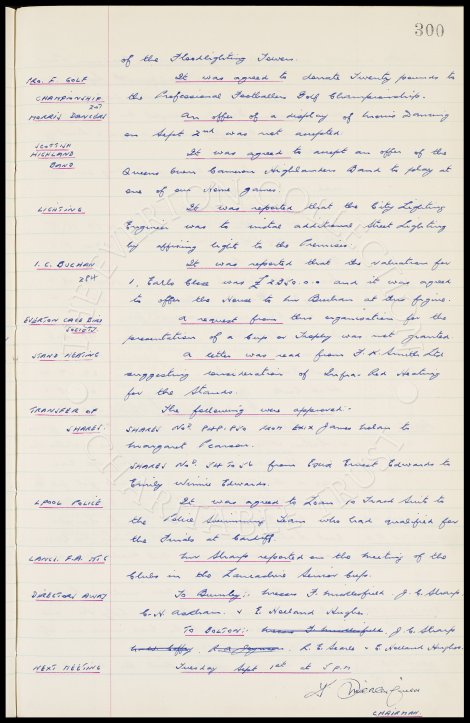 300
of the Floodlighting Towers.
PRO. F. GOLF It was agreed to donate Twenty pounds to
CHAMPIONSHIP the Professional Footballers Golf Championship.
MORRIS DANCERS An offer of a display of Morris Dancing
on Sept 2nd was not accepted
SCOTTISH HIGHLAND BAND It was agreed to accept an offer of the
Queens Own Cameron Highlanders Band to play at
one of our Home games.
LIGHTING It was reported that the City Lighting
Engineer was to install additional Street Lighting
by affixing light to the Premises.
I. C. BUCHAN It was reported that the valuation for
284 1, Earls Close was £2250.0.0 and it was agreed
to offer the House to Mr Buchan at this figure.
EVERTON CAGE BIRD A request from this organisation for the
SOCIETY presentation of a Cup or Trophy was not granted
STAND HEATING A letter was read from F. K. Smith Ltd
suggesting consideration of Infra-Red Heating
for the Stands.
TRANSFER OF The following were approved-
SHARES. SHARES Nos. from James Nolan to
Margaret Pearson.
SHARES Nos. 54 TO 56 from Ernest Edwards to
Emily Winnie Edwards.
LPOOL POLICE It was agreed to Loan 10 Track Suits to
the Police Swimming Team who had qualified for
the Finals at Cardiff.
LANCS. F.A. MTG Mr Sharp reported on the meeting of the
Clubs in the Lancashire Senior Cup.
DIRECTORS AWAY To Burnley:- Messrs F. Micklesfield J. C. Sharp
C. H. Askham. & E. Holland Hughes
TO BOLTON:- Messrs F. Micklesfield, J. C. Sharp
R. E. Searle & E. Holland Hughes.
NEXT MEETING Tuesday Sept 1st at 5 P.M
CHAIRMAN.
THE EVERTON COLLECTION
CHARITABLE TRUST